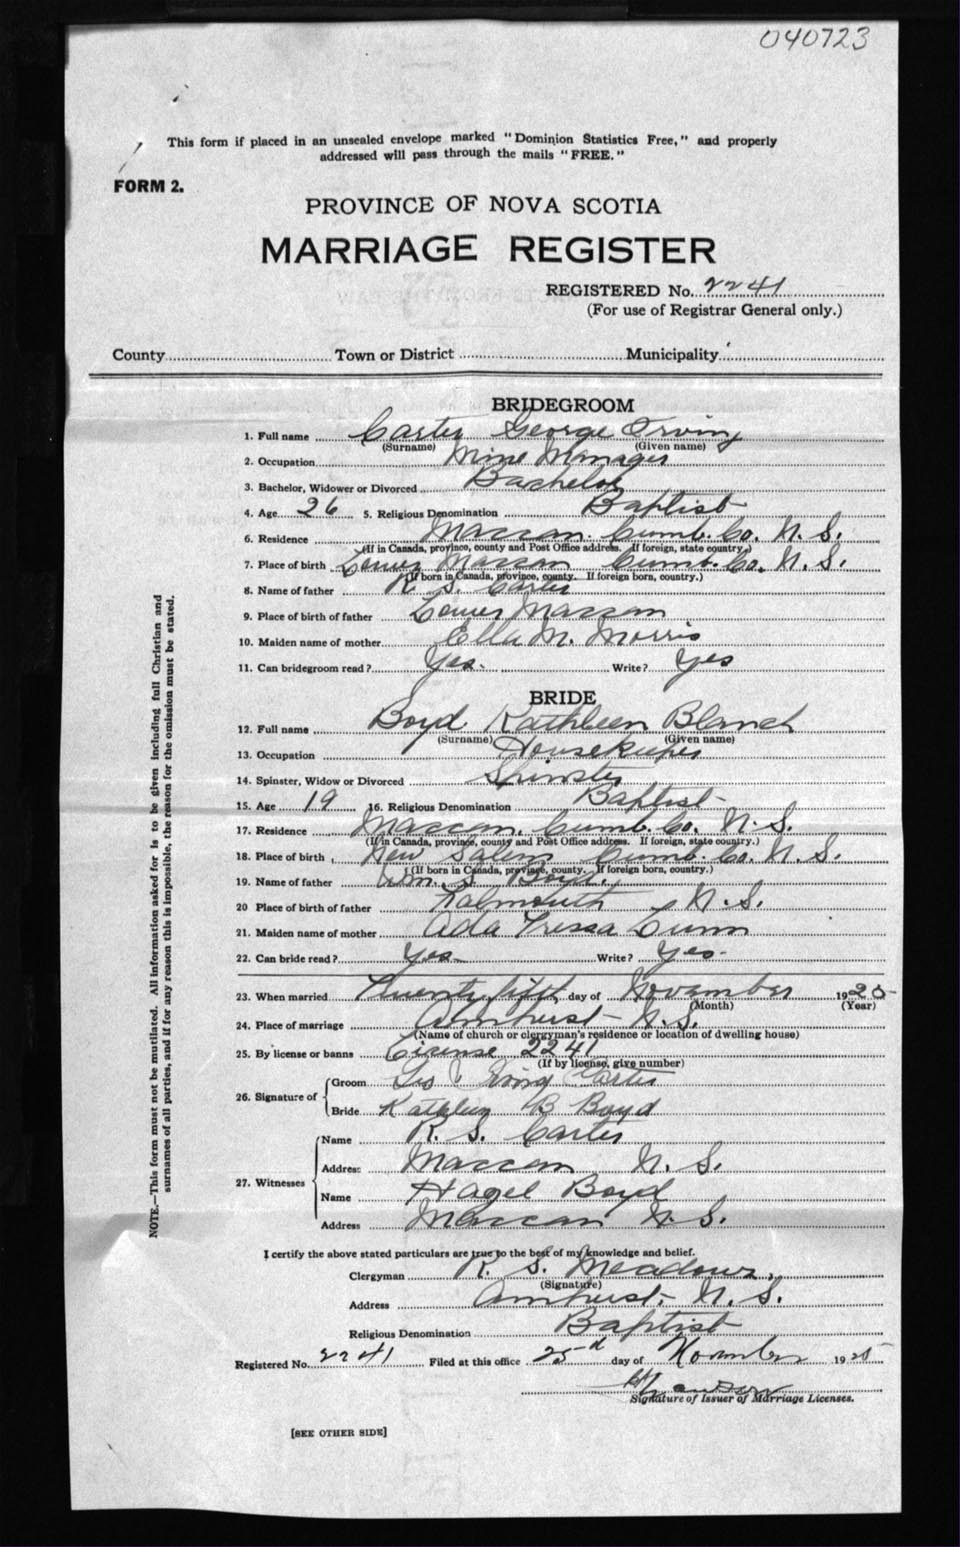 040723
This form if placed in an unsealed envelope marked "Dominion Statistics Free," and properly
addressed will pass through the mails "FREE."
FORM 2.
PROVINCE OF NOVA SCOTIA
MARRIAGE REGISTER
REGISTERED No. 2241
(For use of Registrar General only.)
County Town or District Municipality
BRIDEGROOM
1. Full name Carter George Irving
(Surname) (Given name)
2. Occupation Mine Manager
3. Bachelor, Widower or Divorced Bachelor
4. Age 26 5. Religious Denomination Baptist
6. Residence Maccan Cumb. Co. N. S.
(If in Canada, province, county and Post Office address. If foreign, state country.)
7. Place of birth Lower Maccan Cumb. Co. N. S.
(If born in Canada, province, county. If foreign born, country.)
8. Name of father R. S. Carter
9. Place of birth of father Lower Maccan
10. Maiden name of mother Ella M. Morris
11. Can bridegroom read? Yes. Write? Yes
BRIDE
12. Full name Boyd Kathleen Blanch
(Surname) (Given name)
13. Occupation Housekeeper
14. Spinster, Widow or Divorced Spinster
15. Age 19 16. Religious Denomination Baptist
17. Residence Maccan, Cumb. Co. N. S.
(If in Canada, province, county and Post Office address. If foreign, state country.)
18. Place of birth New Salem Cumb. Co. N. S.
(If born in Canada, province, county. If foreign born, country.)
19. Name of father Wm. S. Boyd.
20 Place of birth of father Falmouth N. S.
21. Maiden name of mother Ada Tressa
22. Can bride read? Yes Write? Yes.
23. When married Twenty fifth day of November 1925
(Month) (Year)
24. Place of marriage Amherst N. S.
(Name of church or clergyman's residence or location of dwelling house)
25. By license or banns License 2241
(If by license, give number)
26. Signature of Groom Geo Irving Carter
Bride Kathleen B Boyd
27. Witnesses Name R. S. Carter
Address Maccan N. S.
Name Hazel Boyd
Address Maccan N. S.
I certify the above stated particulars are true to the best of my knowledge and belief.
Clergyman R. S. Meadows,
(Signature)
Address Amherst, N. S.
Religious Denomination Baptist
Registered No. 2241 Filed at this office 25 d day of November 1925
Signature of Issuer of Marriage Licenses.
[SEE OTHER SIDE]
NOTE.—This form must not be mutilated. All information asked for is to be given including full Christian and
surnames of all parties, and if for any reason this is impossible, the reason for the omission must be stated.